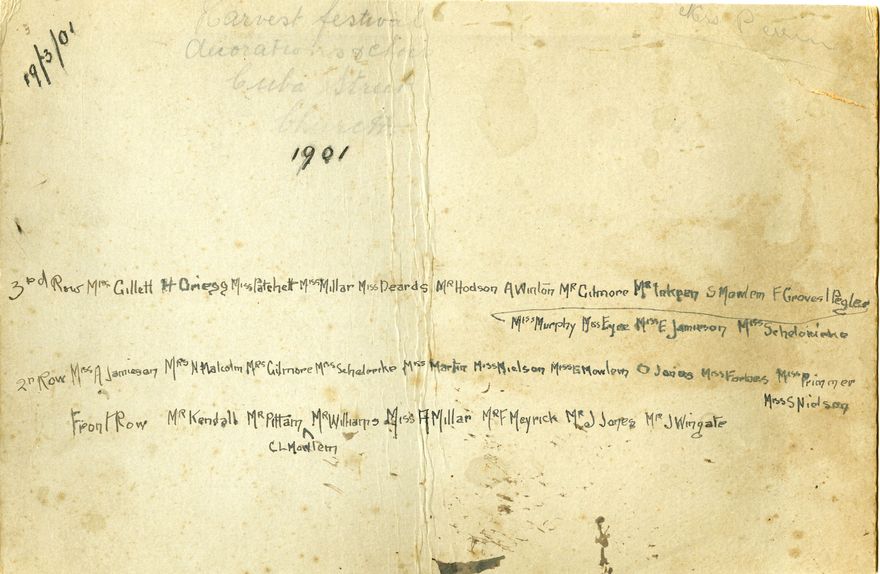 19/3/01
Harvest festival
decorations & choir
Cuba Street
Church
Mrs
1901
3rd Row Mrs Gillett H Driess Miss Patchett Miss Millar Miss Deards Mr Hodson A Winton Mr Gilmore Mr Inkpen S Mowlem F Groves I Pegler
Miss Murphy Miss Eyee Miss E Jamieson Miss
2n Row Mrs A Jamieson Mrs N Malcolm Mrs Gilmore Mrs Miss Martin Miss Nielson Miss E Mowlem O Jones Miss Forbes Miss Primmer
Miss S Nielson
Front Row Mr Kendall Mr Pittam Mr Williams Miss A Millar Mr F Meyrick Mr J Jones Mr J Wingate
C L Mowlem